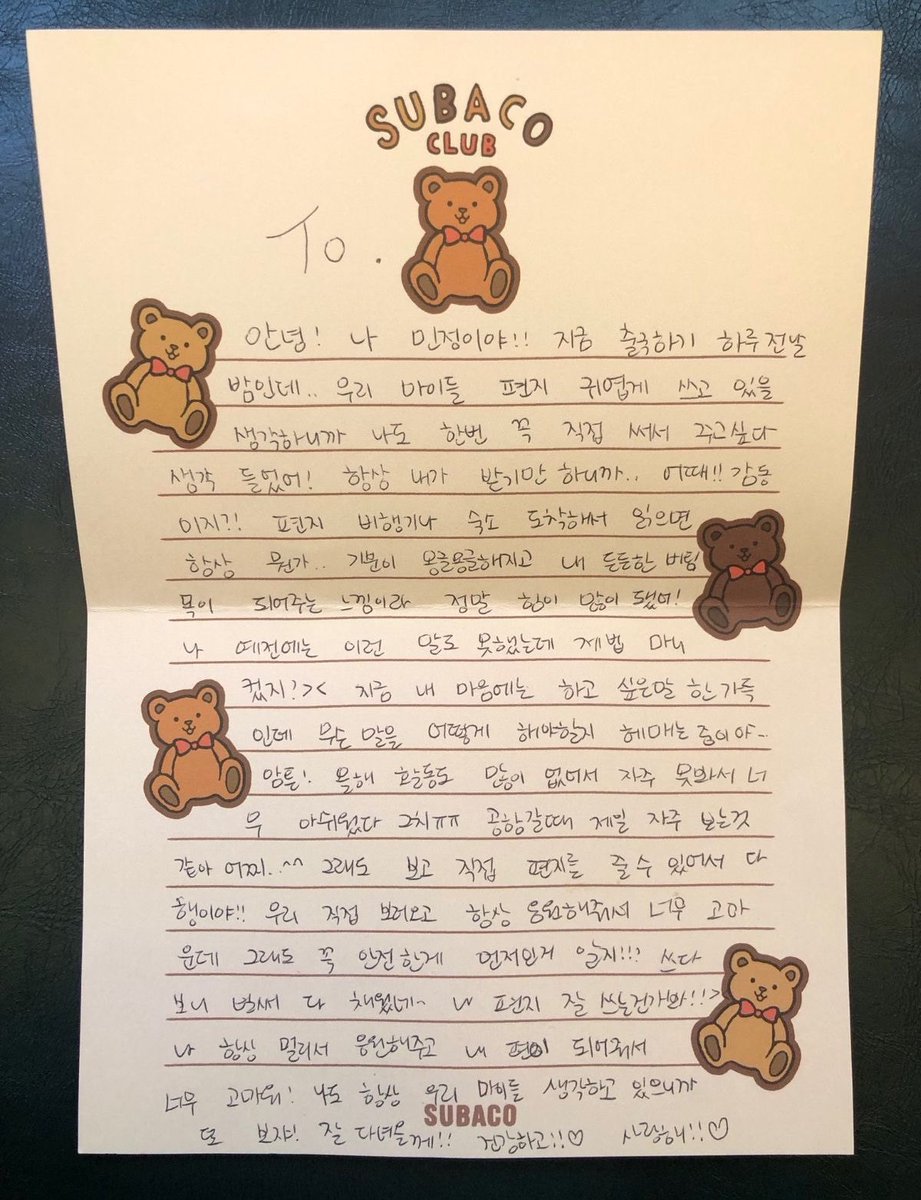 SUBACO
CLUB
To.
안녕! 나 민정이야!! 지금 출국하기 하루전날
밤인데.. 우리 마이들 편지 귀엽게 쓰고 있을
생각하니까 나도 한번 꼭 직접 써서 주고싶다
생각 들었어! 항상 내가 받기만 하니까.. 어때!! 감동
이지?! 편지 비행기나 숙소 도착해서 읽으면
항상 뭔가.. 기분이 몽글몽글해지고 내 든든한 버팀
목이 되어주는 느낌이라 정말 힘이 많이 됐어!
나 예전에는 이런 말도 못했는데 제법 마니
컸지?>< 지금 내 마음에는 하고 싶은말 한가득
인데 무슨 말을 어떻게 해야할지 헤매는 중이야~
암튼! 올해 활동도 많이 없어서 자주 못봐서 너
무 아쉬웠다 그치ㅠㅠ 공항갈때 제일 자주 보는것
같아 어찌..^^ 그래도 보고 직접 편지를 줄 수 있어서 다
행이야!! 우리 직접 보러오고 항상 응원해줘서 너무 고마
운데 그래도 꼭 안전한게 먼저인거 알지!!? 쓰다
보니 벌써 다 채웠네~ 나 편지 잘 쓰는건가봐!!>
나 항상 멀리서 응원해주고 내 편이 되어줘서
너무 고마워! 나도 항상 우리 마이들 생각하고 있으니까
SUBACO
또 보자! 잘 다녀올게!! 건강하고!!♡ 사랑해!!♡